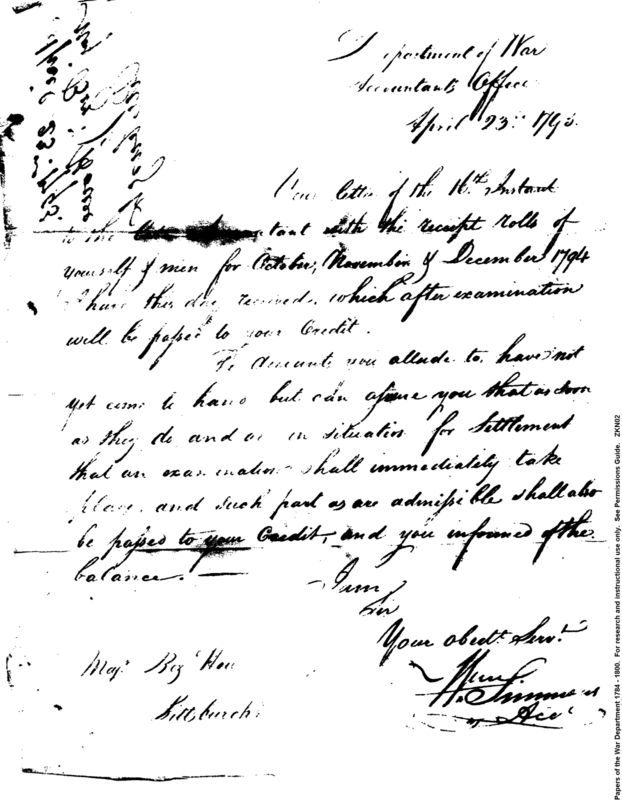 Department of War
Accountants Office
April 23d. 1795.
Your letter of the 16th. Instant
to the with the receipt rolls of
yourself & men for October, November & December 1794
I have this day received, which after examination
will be passed to your Credit.
The Accounts you allude to, have not
yet come to hand but can assure you that as soon
as they do and are in situation for Settlement
that an examination shall immediately take
place, and such part as are admissible shall also
be passed to your Credit, and you informed of the
balance.
I am
Sir
Your obedt. Servt.
Wm. Simmons
Majr.
Pittsburgh
Papers of the War Department 1784 - 1800. For research and instructional use only. See Permissions Guide. ZKN02